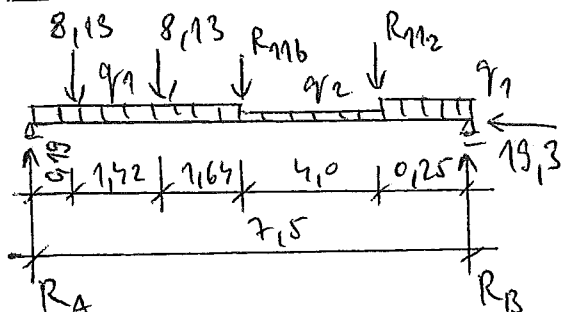 8,13 8,13 R11b R112
q1 q2 q1
19,3
0,19 1,42 1,64 4,0 0,25
7,5
RA RB